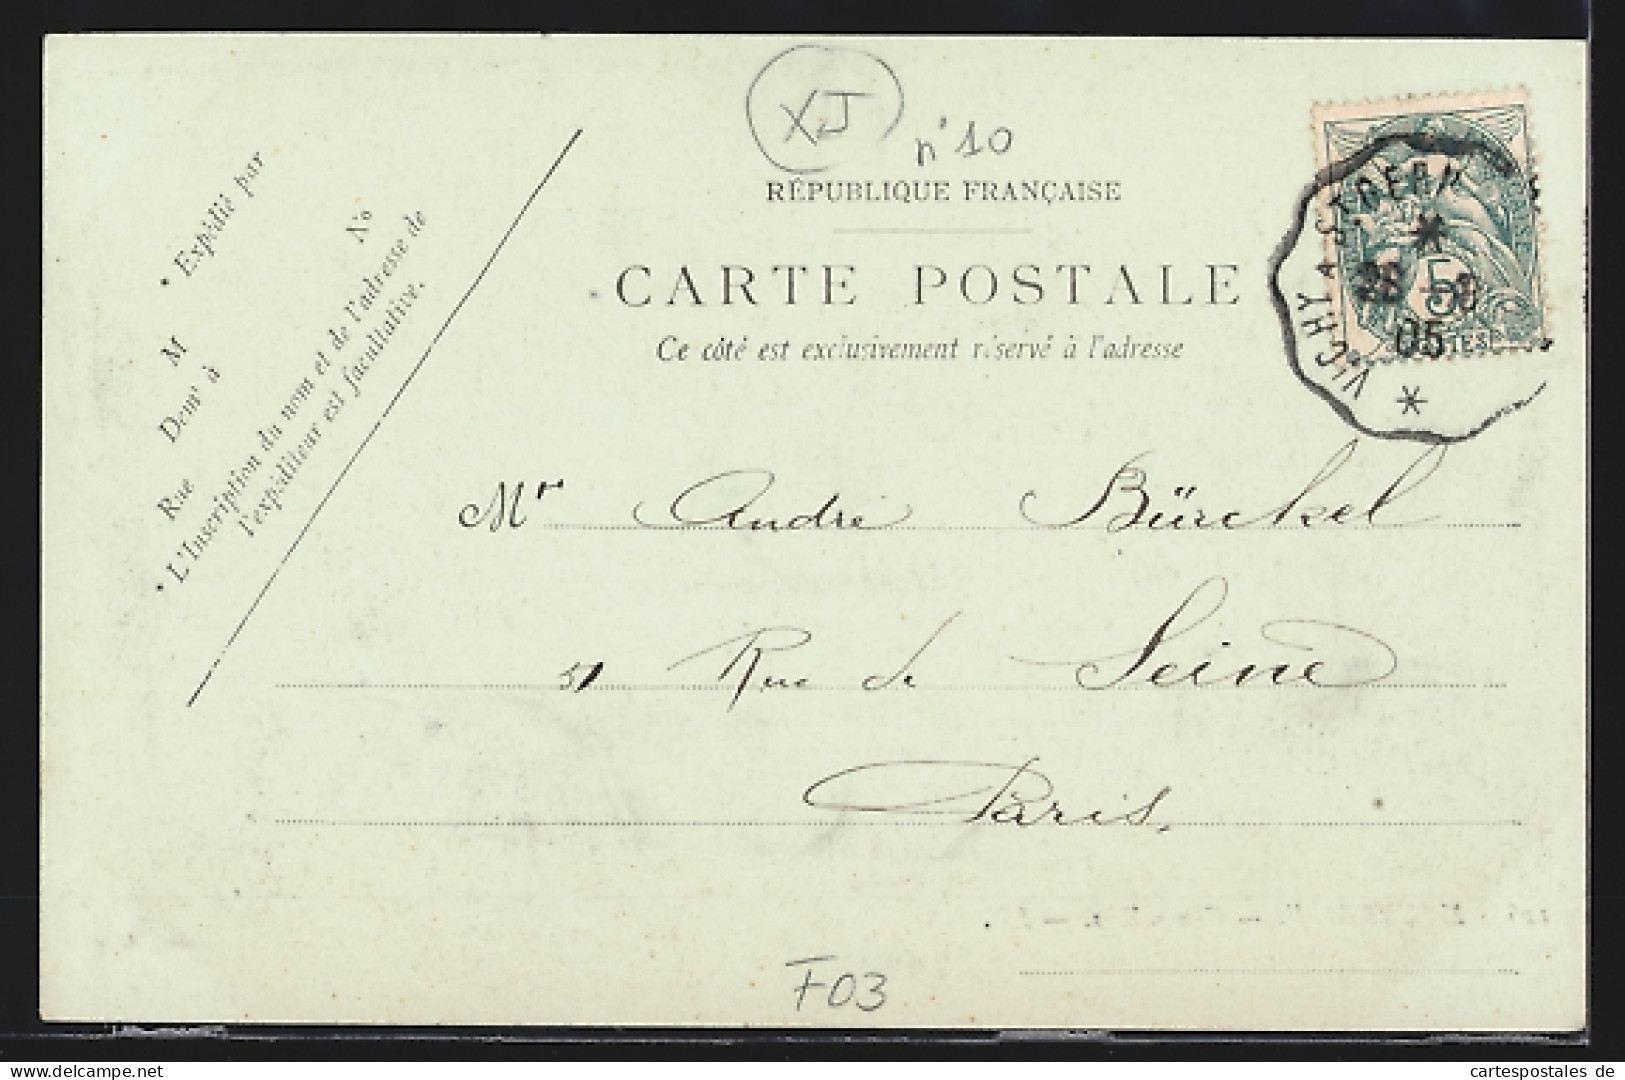 XJ
n° 10
RÉPUBLIQUE FRANÇAISE
CARTE POSTALE
Ce côté est exclusivement réservé à l'adresse
Expédié par
M
Demt à
Rue
N°
L'Inscription du nom et de l'adresse de
l'expéditeur est facultative.
VICHY A ST GERM
05
5
Mr Andre Bürckel
51 Rue de Seine
Paris.
F03
delcampe.net
cartespostales de